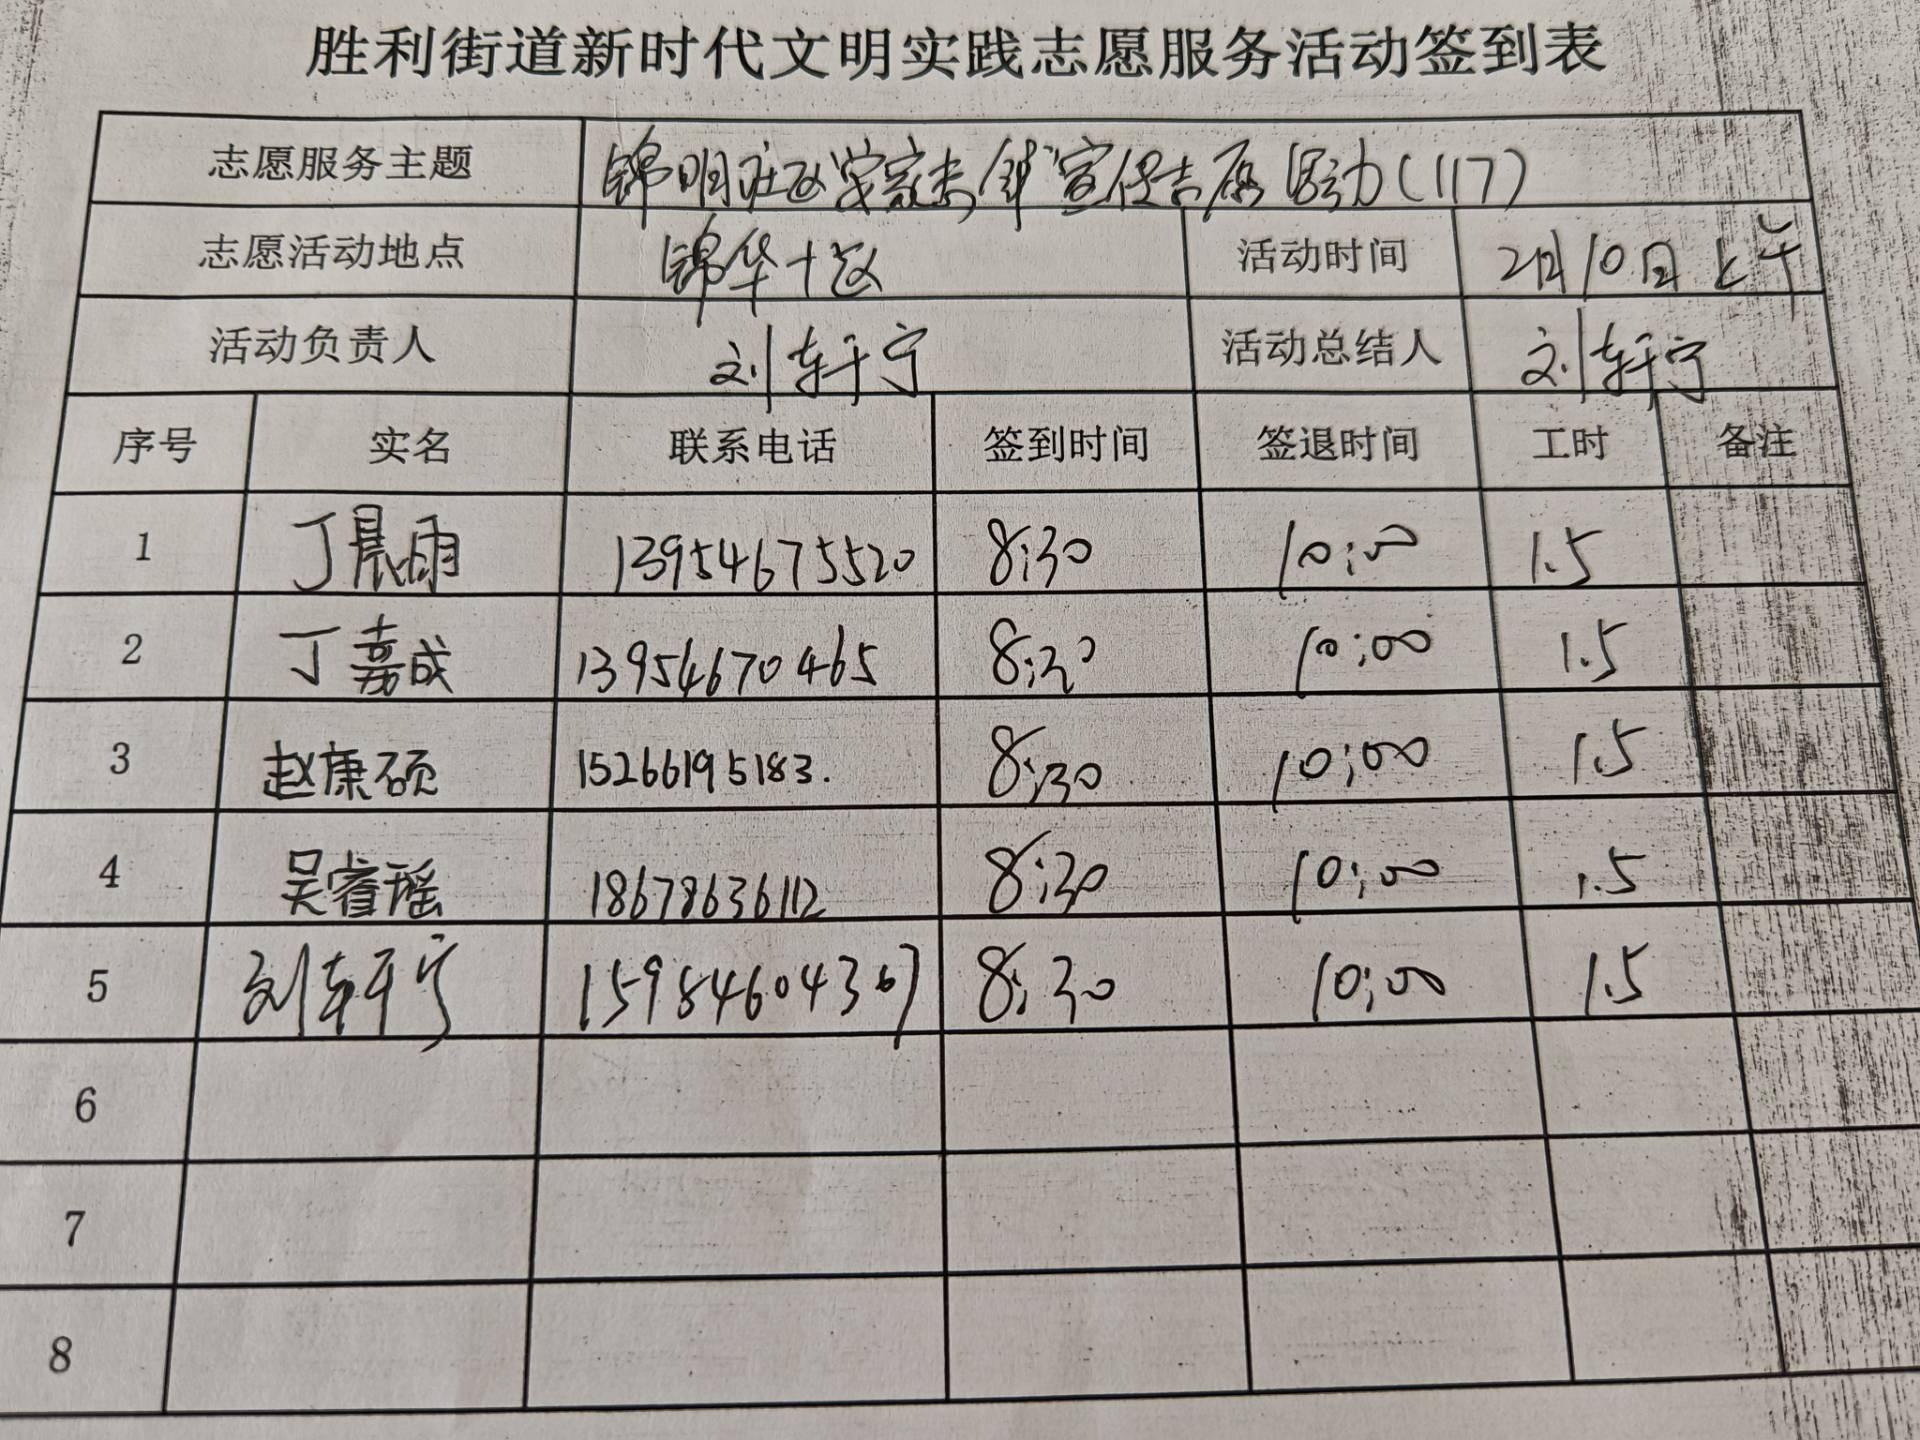 胜利街道新时代文明实践志愿服务活动签到表
志愿服务主题 锦明社区 宣传志愿活动(117)
志愿活动地点 锦华十区 活动时间 2月10日上午
活动负责人 刘轩宁 活动总结人 刘轩宁
序号 实名 联系电话 签到时间 签退时间 工时 备注
1 丁晨雨 13954675520 8:30 10:00 1.5
2 丁嘉成 13954670465 8:30 10:00 1.5
3 赵康硕 15266195183. 8:30 10:00 1.5
4 吴睿瑶 18678636112 8:30 10:00 1.5
5 刘轩宁 15984604367 8:30 10:00 1.5
6
7
8